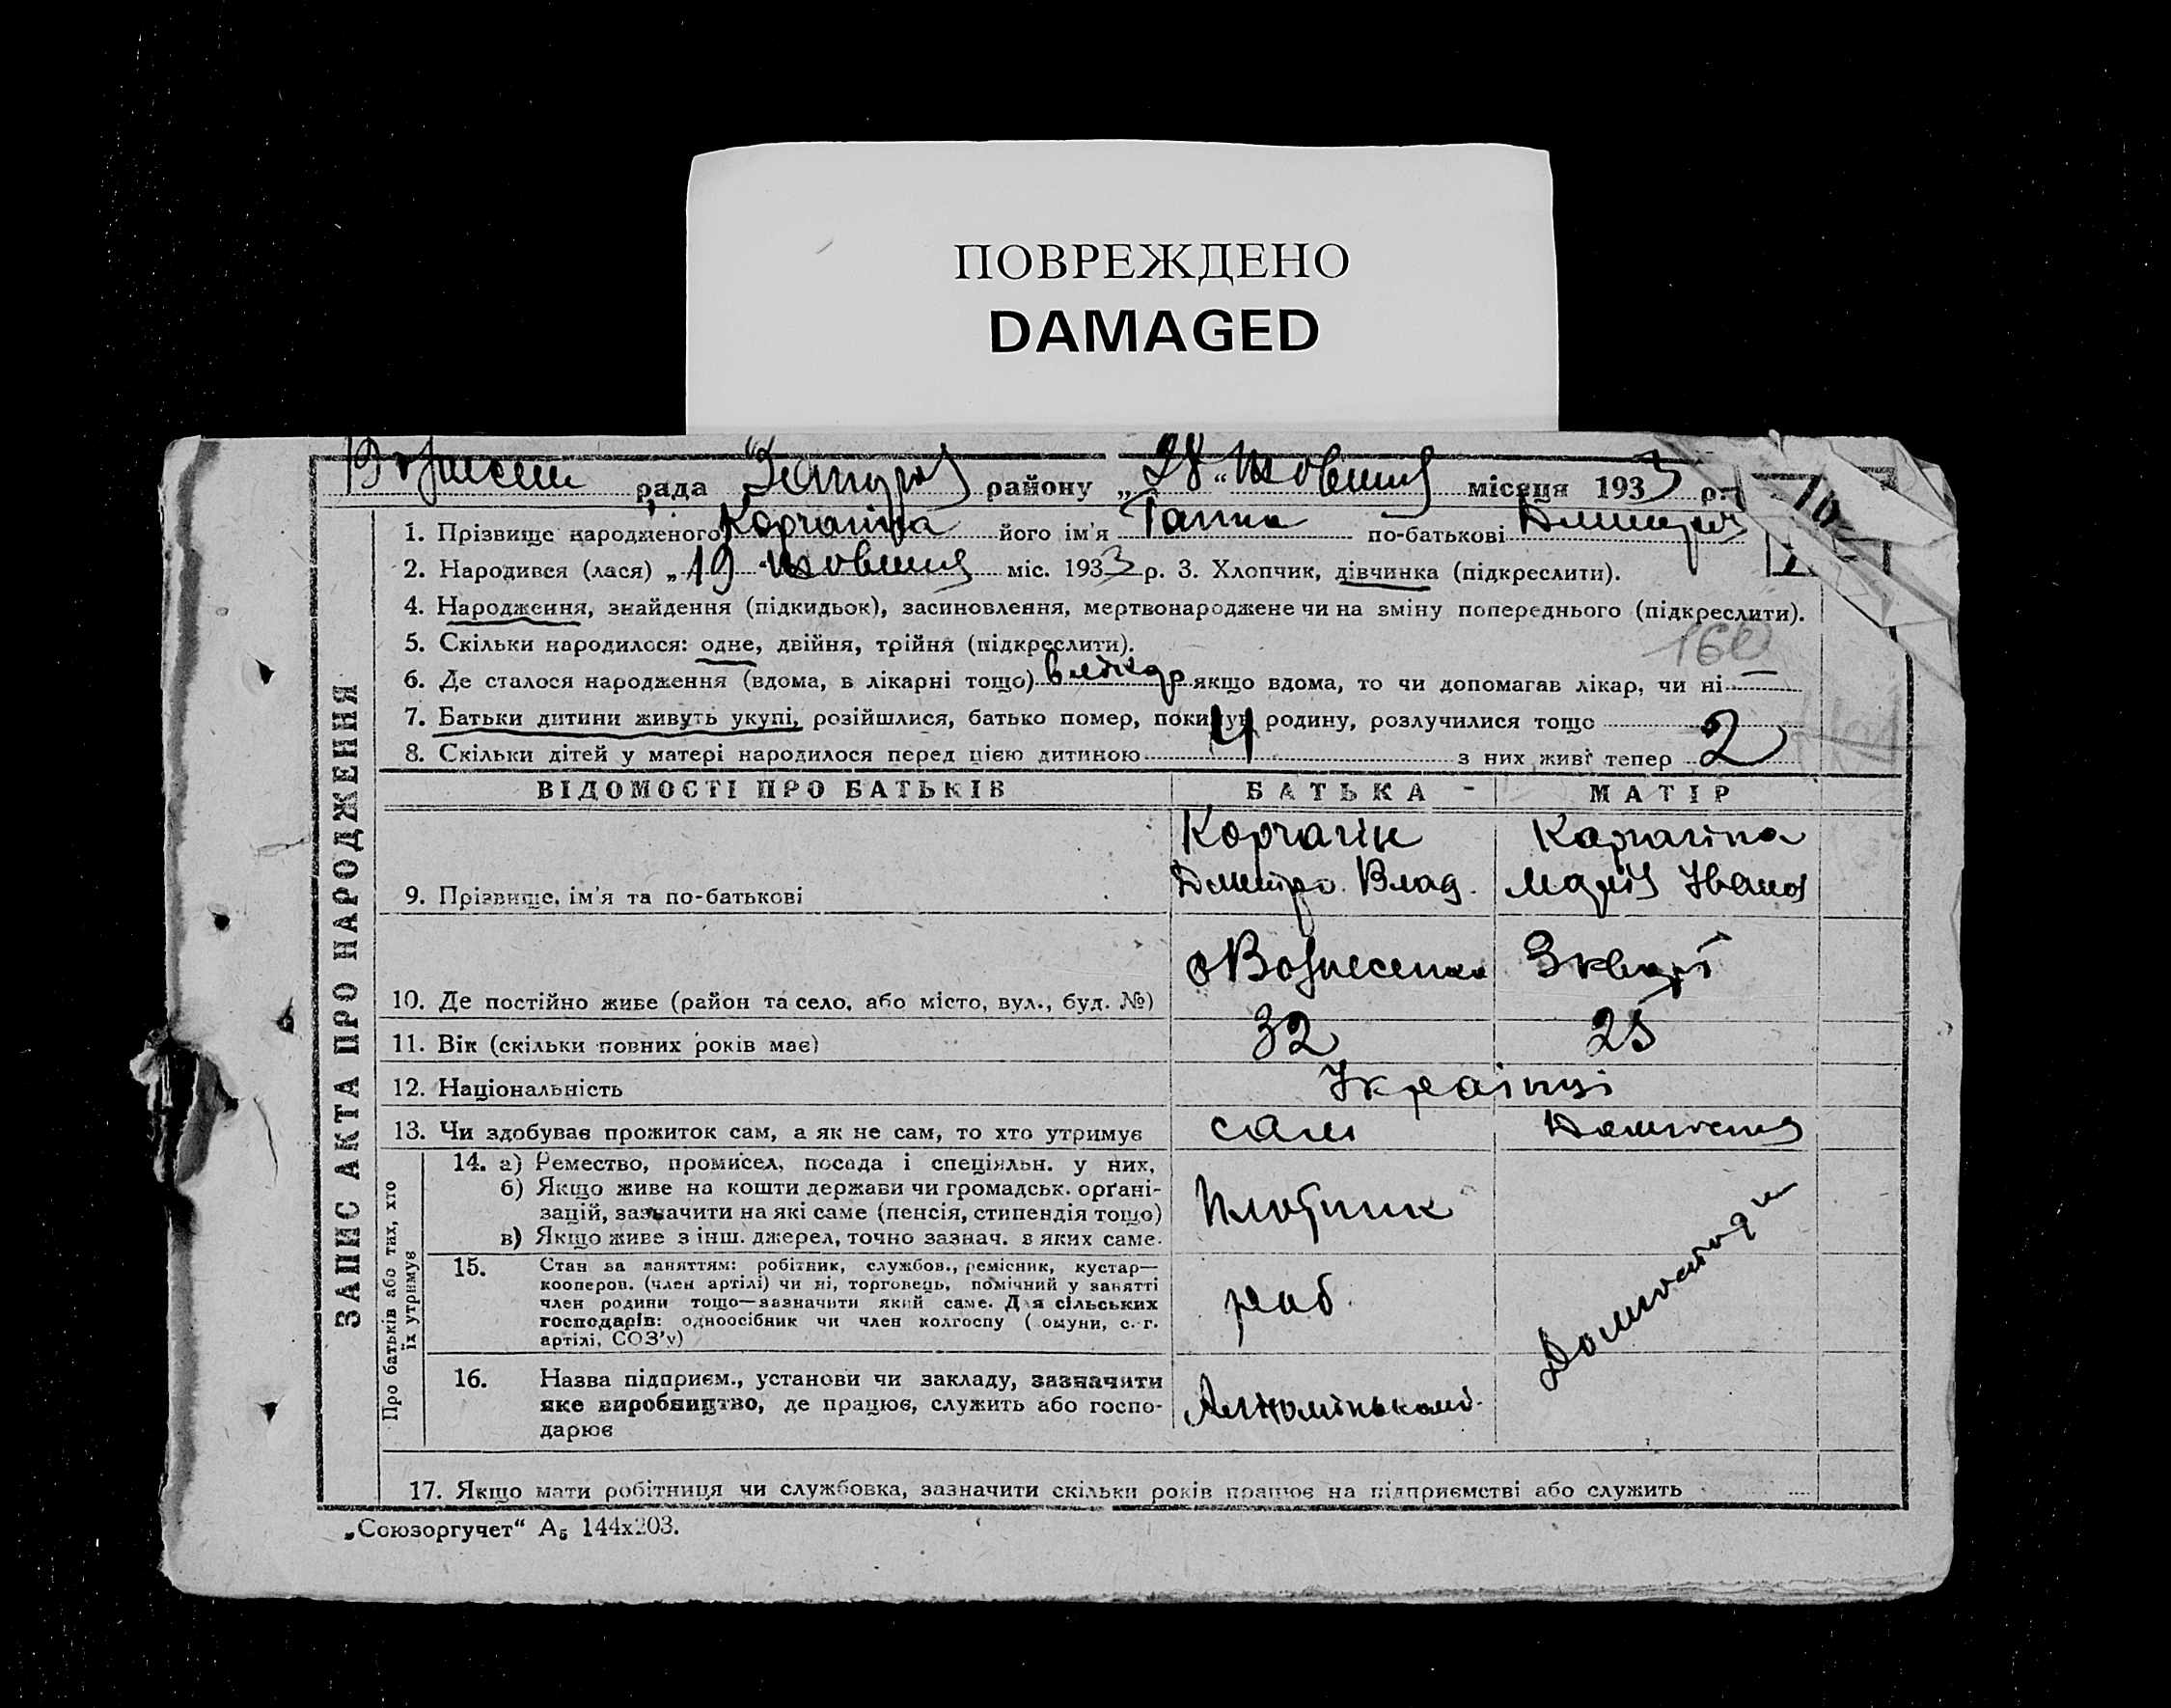 ПОВРЕЖДЕНО
DAMAGED
Вознесен рада Запоріз району „28“ Жовтня місяця 1933 р.
1. Прізвище народженого Корчагіна його ім'я Ганна по-батькові Дмитрів
2. Народився (лася) „19“ Жовтня міс. 1933 р. 3. Хлопчик, дівчинка (підкреслити).
4. Народження, знайдення (підкидьок), засиновлення, мертвонароджене чи на зміну попереднього (підкреслити).
160
5. Скільки народилося: одне, двійня, трійня (підкреслити).
6. Де сталося народження (вдома, в лікарні тощо) якщо вдома, то чи допомагав лікар, чи ні
7. Батьки дитини живуть укупі, розійшлися, батько помер, покинув родину, розлучилися тощо
8. Скільки дітей у матері народилося перед цією дитиною 4 з них живі тепер 2
ЗАПИС АКТА ПРО НАРОДЖЕННЯ
ВІДОМОСТІ ПРО БАТЬКІВ БАТЬКА МАТІР
Корчагін Карчагіна
9. Прізвище, ім'я та по-батькові Дмитро Влад. Марія Іванов
10. Де постійно живе (район та село, або місто, вул., буд. №) Вознесенка
11. Вік (скільки повних років має) 32 25
12. Національність Українці
13. Чи здобуває прожиток сам, а як не сам, то хто утримує сам Домогосп
Про батьків або тих, хто їх утримує
14. а) Ремество, промисел, посада і спеціяльн. у них,
б) Якщо живе на кошти держави чи громадськ. орґані-
зацій, зазначити на які саме (пенсія, стипендія тощо) Плотник
в) Якщо живе з інш. джерел, точно зазнач. з яких саме.
15. Стан за заняттям: робітник, службов., ремісник, кустар—
кооперов. (член артілі) чи ні, торговець, помічний у занятті
член родини тощо—зазначити який саме. Для сільських роб.
господарів: одноосібник чи член колгоспу (омуни, с.-г.
артілі, СОЗ'у)
16. Назва підприєм., установи чи закладу, зазначити
яке виробництво, де працює, служить або госпо- Алюмінькомб.
дарює
17. Якщо мати робітниця чи службовка, зазначити скільки років працює на підприємстві або служить
„Союзоргучет“ А₅ 144х203.